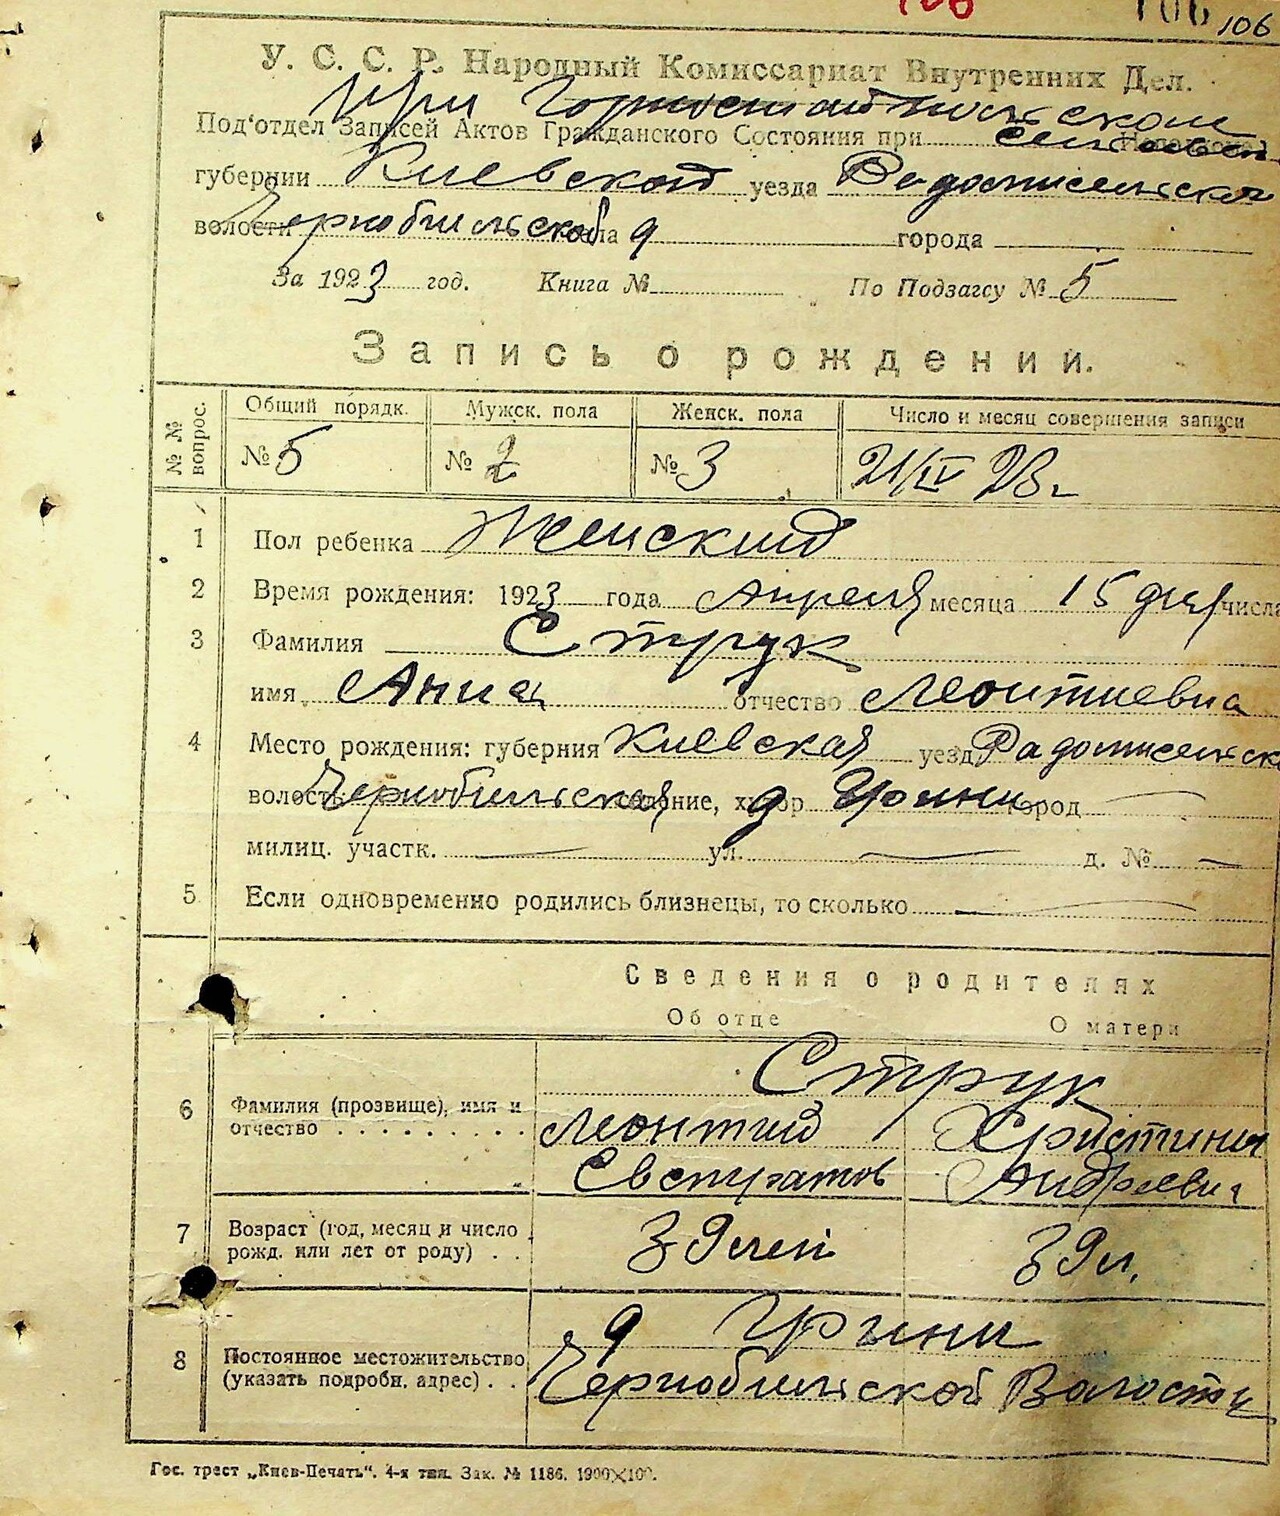 106 106 106
У. С. С. Р. Народный Комиссариат Внутренних Дел.
при Горностайпольском
Под'отдел Записей Актов Гражданского Состояния при
губернии Киевской уезда Радомисельской
волости Чернобильской села д города
За 1923 год. Книга № По Подзагсу № 5
Запись о рождении.
№ № вопрос. Общий порядк. Мужск. пола Женск. пола Число и месяц совершения записи
№ 5 № 2 № 3 21/IV 23 г
1 Пол ребенка Женский
2 Время рождения: 1923 года Апреля месяца 15 дня числа
3 Фамилия Струк
имя Анна отчество Леонтиевна
4 Место рождения: губерния Киевская уезд Радомисельск
волость Чернобильская селение, хутор д Грини город
милиц. участк. ул. д. №
5 Если одновременно родились близнецы, то сколько
Сведения о родителях
Об отце О матери
Струк
6 Фамилия (прозвище), имя и Леонтий Христина
отчество . . . . . . . . . Евстратов Андреевна
7 Возраст (год, месяц и число 39 лет 39 л.
рожд. или лет от роду) . .
д Грини
8 Постоянное местожительство
(указать подробн. адрес) . . Чернобильской Волости
Гос. трест „Киев-Печать“. 4-я тип. Зак. № 1186. 1900×100.